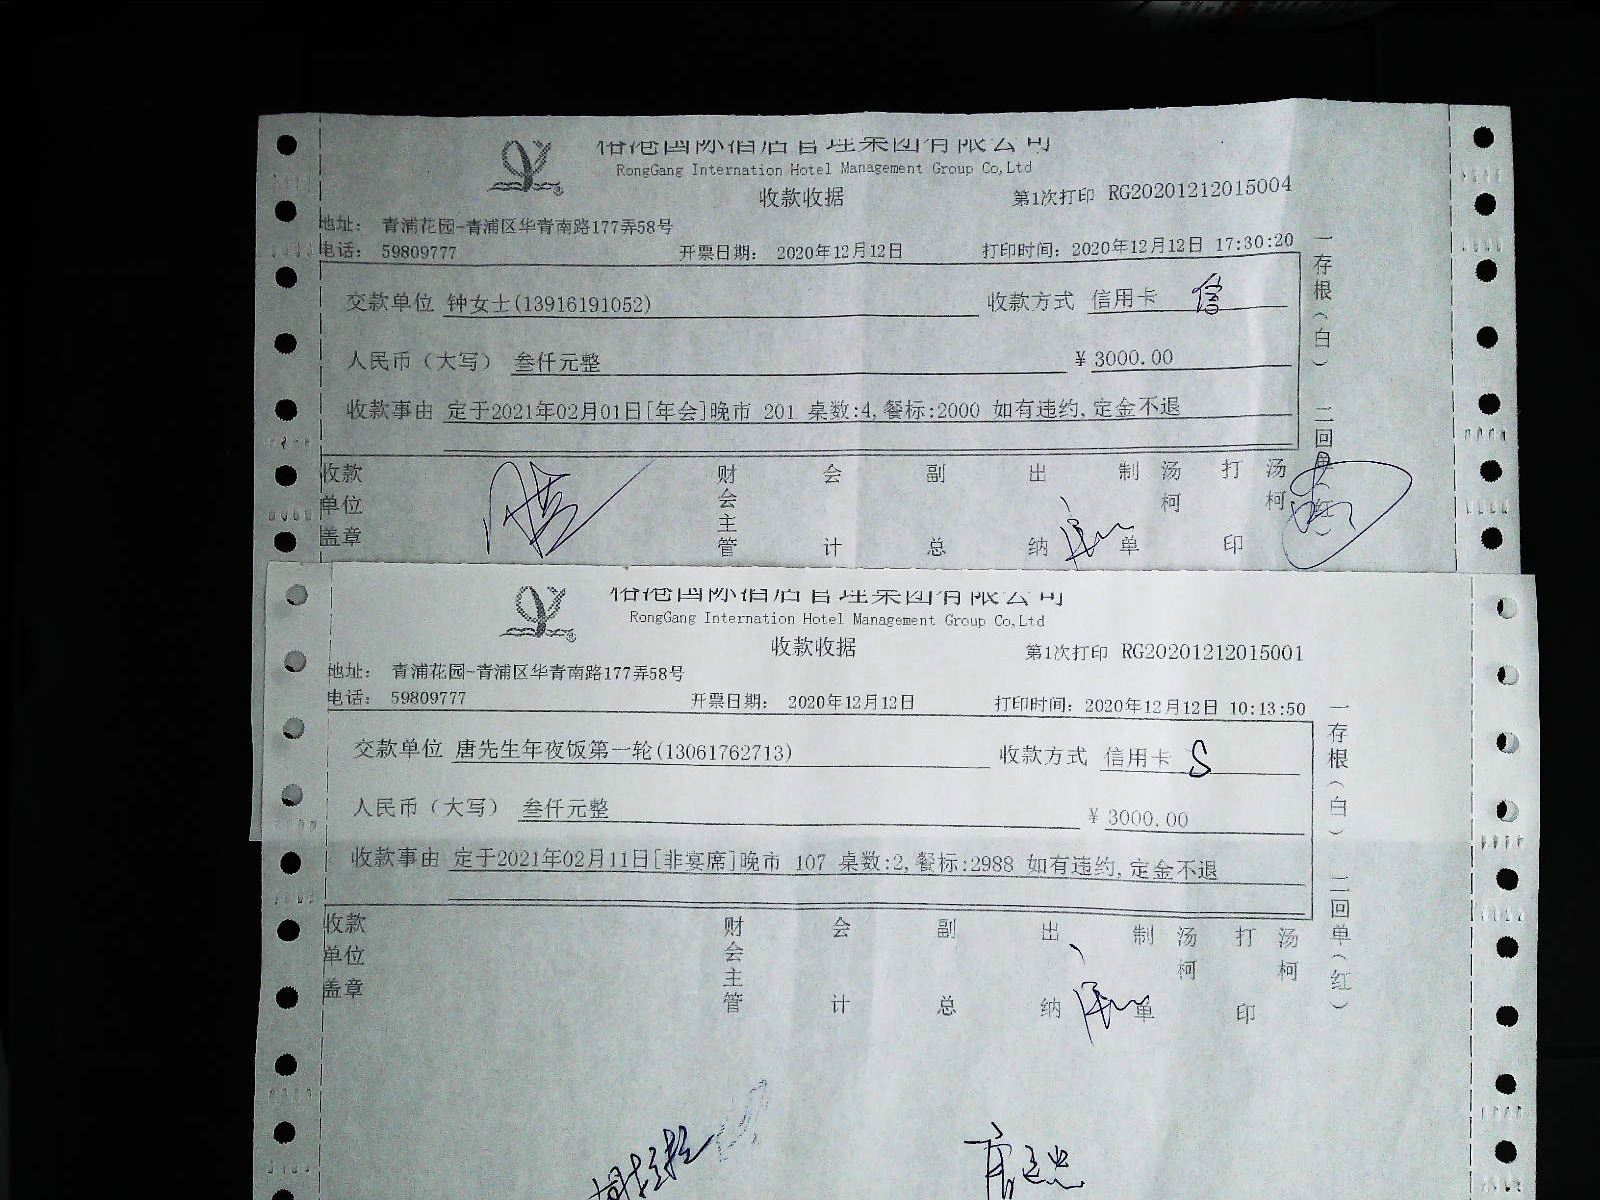 榕港国际酒店管理集团有限公司
RongGang Internation Hotel Management Group Co,Ltd
收款收据
第1次打印 RG20201212015004
地址： 青浦花园-青浦区华青南路177弄58号
电话： 59809777 开票日期： 2020年12月12日 打印时间：2020年12月12日 17:30:20
交款单位 钟女士(13916191052) 收款方式 信用卡 信
人民币（大写） 叁仟元整 ¥3000.00
收款事由 定于2021年02月01日[年会]晚市 201 桌数:4,餐标:2000 如有违约,定金不退
收款单位盖章 财会主管 会计 副总 出纳 制单 汤柯 打印 汤柯
一存根（白） 二回单（红）
榕港国际酒店管理集团有限公司
RongGang Internation Hotel Management Group Co,Ltd
收款收据
第1次打印 RG20201212015001
地址： 青浦花园-青浦区华青南路177弄58号
电话： 59809777 开票日期： 2020年12月12日 打印时间：2020年12月12日 10:13:50
交款单位 唐先生年夜饭第一轮(13061762713) 收款方式 信用卡 S
人民币（大写） 叁仟元整 ¥3000.00
收款事由 定于2021年02月11日[非宴席]晚市 107 桌数:2,餐标:2988 如有违约,定金不退
收款单位盖章 财会主管 会计 副总 出纳 制单 汤柯 打印 汤柯
一存根（白） 二回单（红）